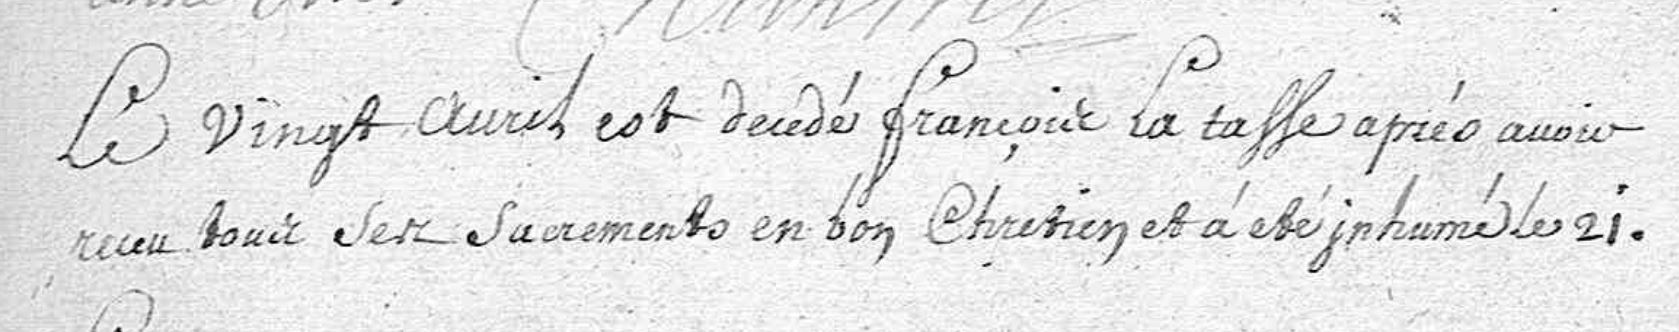 Le vingt auril est decedé françois La tasse aprés auoir
receu tous ses sacrements en bon Chretien et á eté jnhumé le 21.